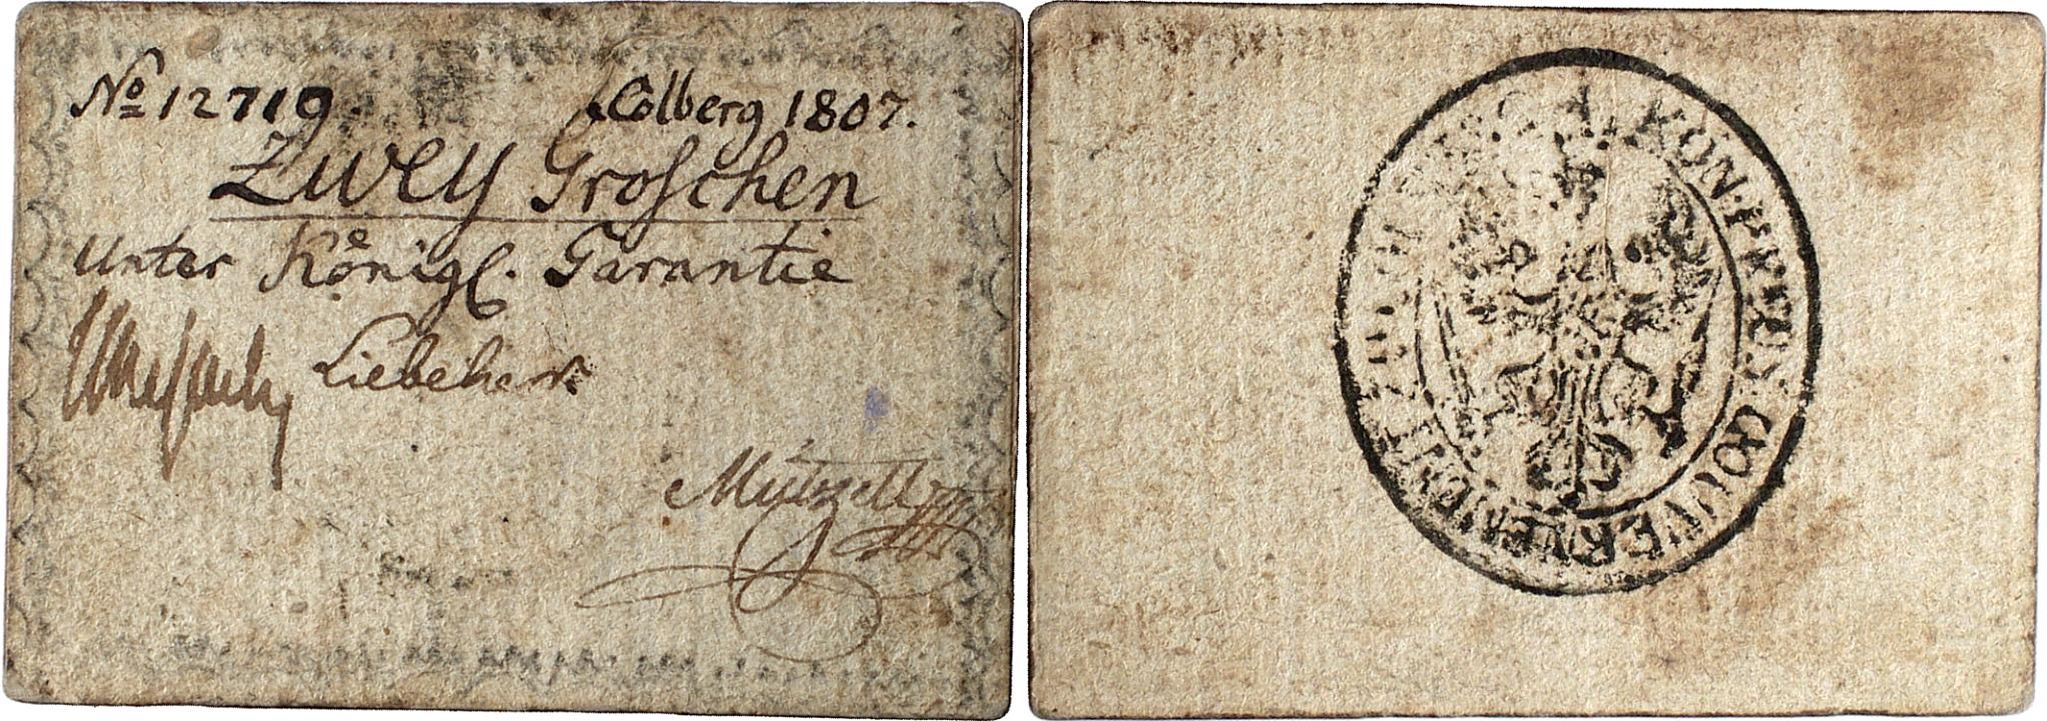 No 12719. Colberg 1807.
Zwey Groschen
Unter Königl. Garantie
Liebeherr
Mützell
KÖN. PREUS. GOUVERNEMENT